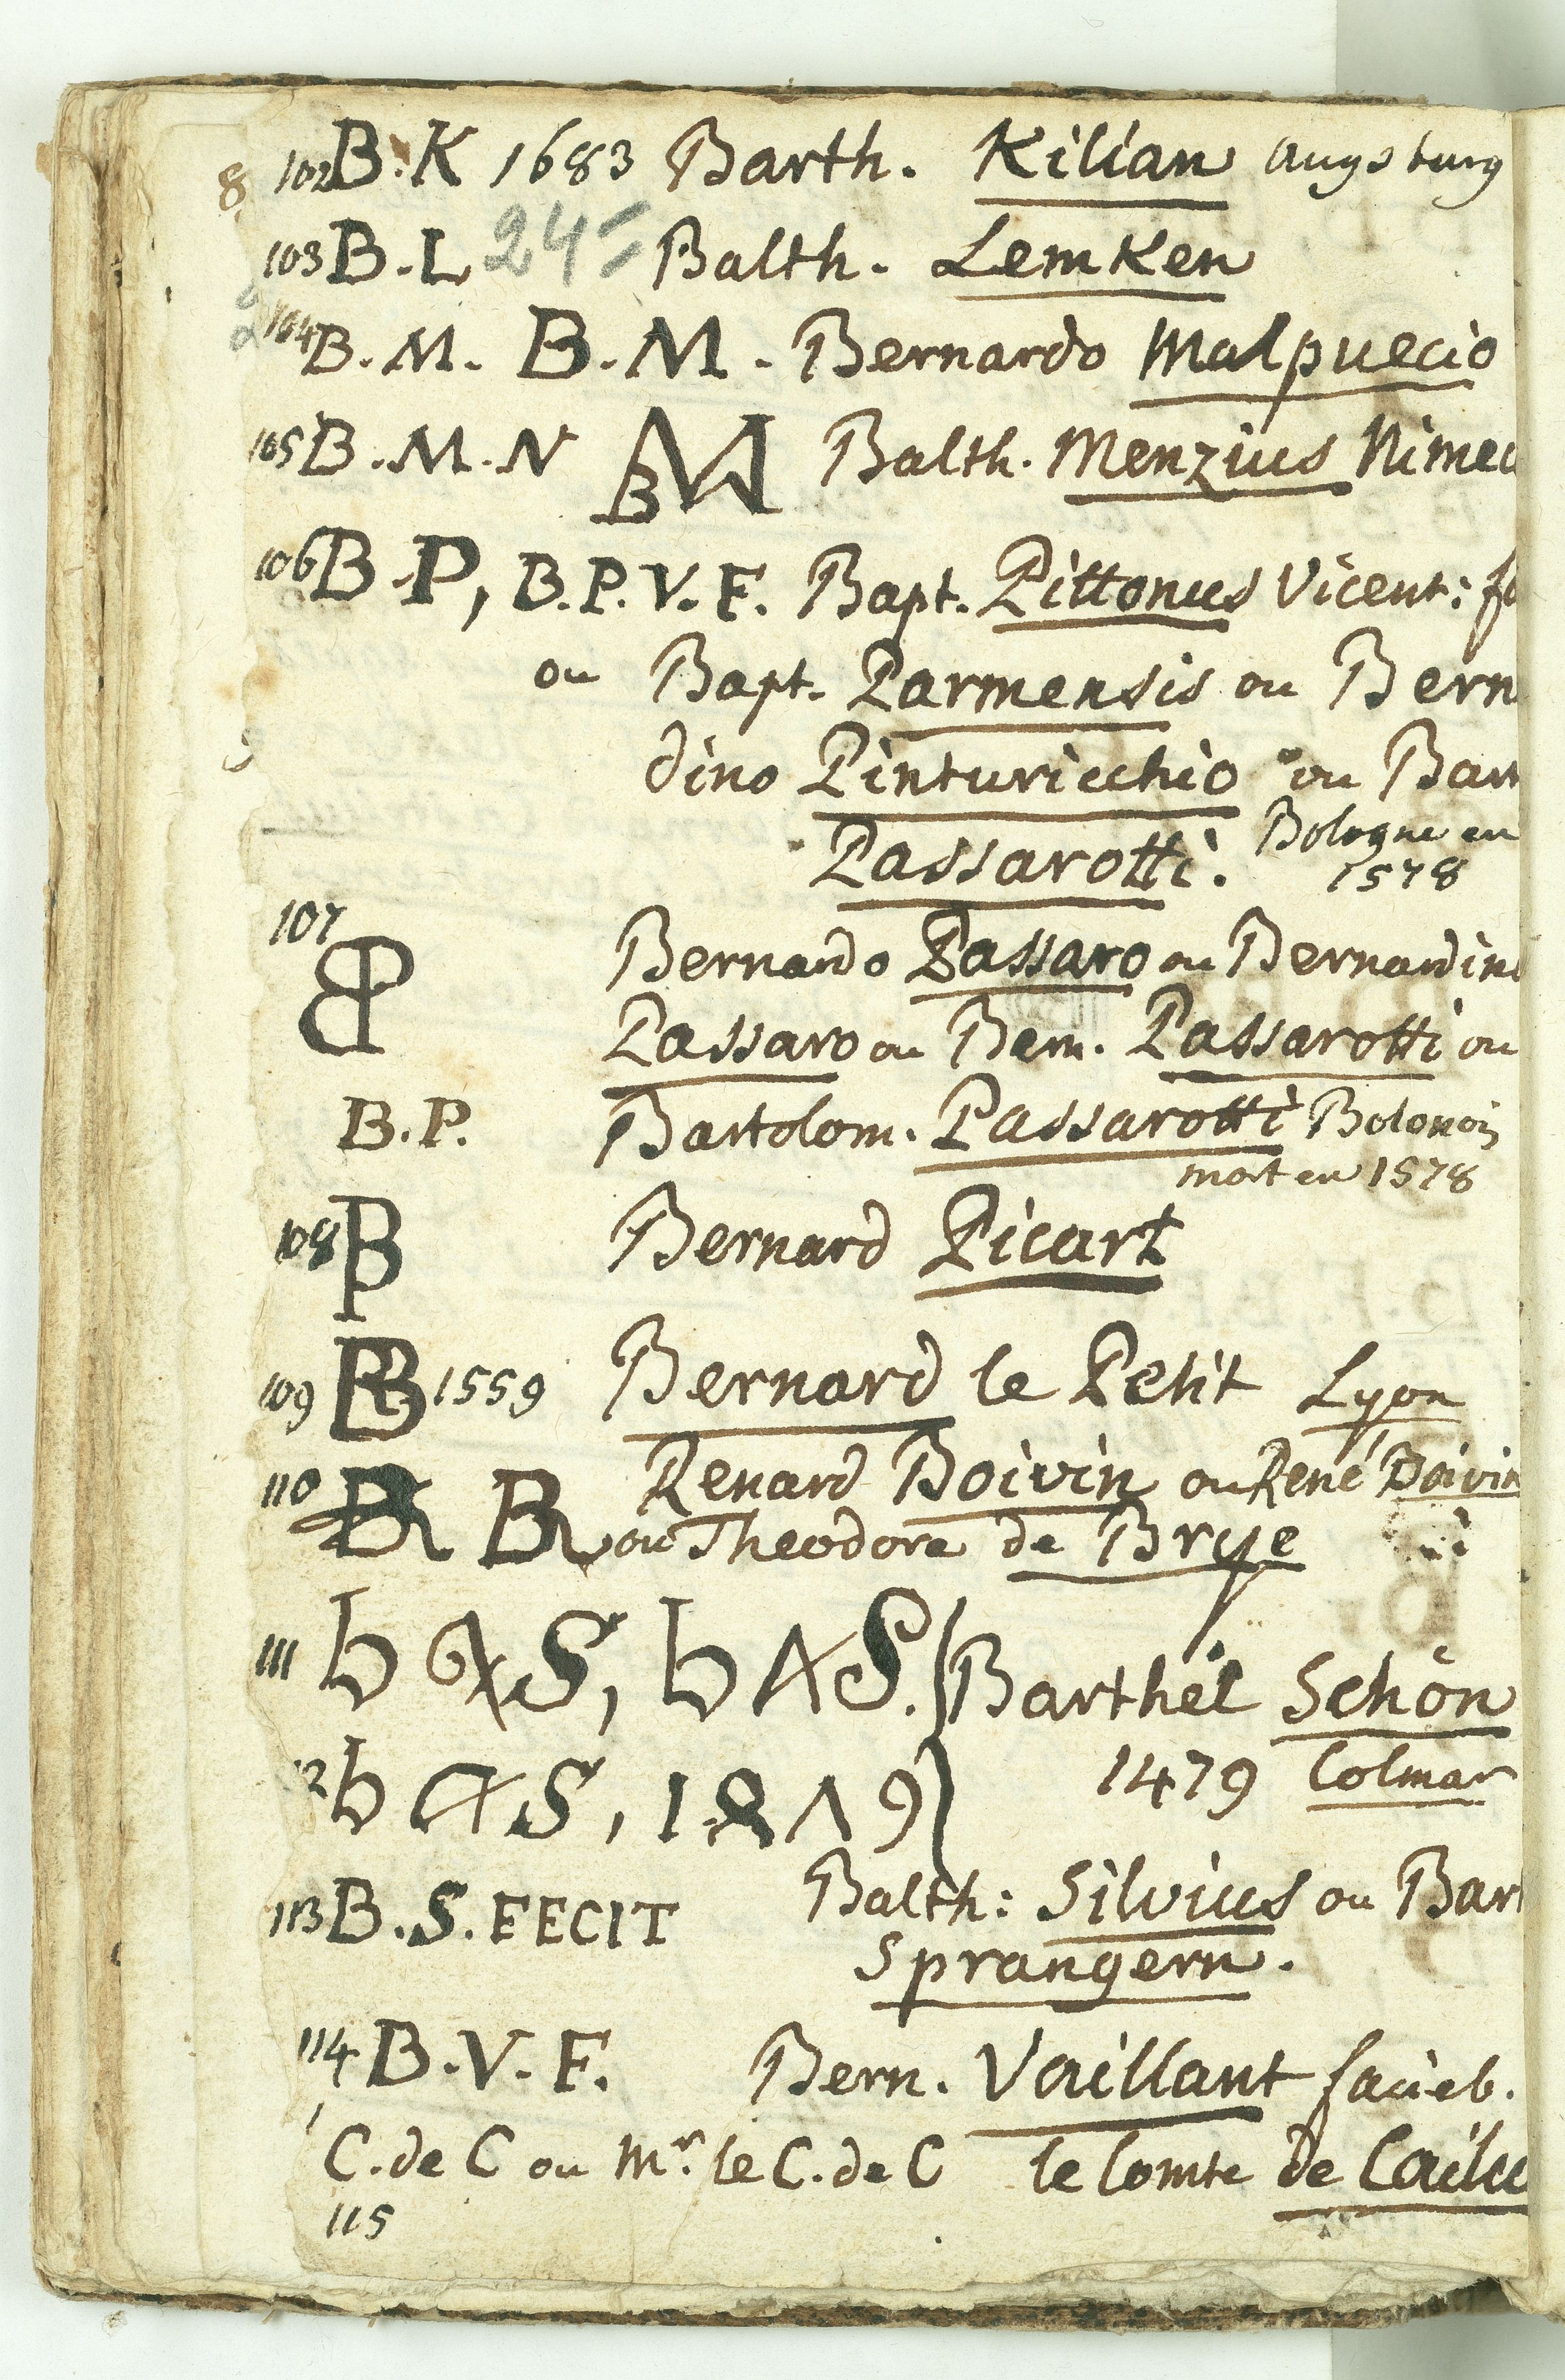 8. 102 B. K 1683 Barth. Kilian Augsburg
103 B. L 24 Balth. Lemken
104 B. M. B. M. Bernardo Malpuecio
105 B. M. N BM Balth. Menzius Nimec
106 B. P, B. P. V. F. Bapt. Pittonus Vicent: f
ou Bapt. Parmensis ou Bern
dino Pinturicchio ou Bart
Passarotti. Bologne en
1578
107
BP Bernardo Passaro ou Bernardino
Passaro ou Bern. Passarotti ou
B. P. Bartolom. Passarotti Bolonois
mort en 1578
108 BP Bernard Picart
109 BB 1559 Bernard le Petit Lyon
110 BR BR Renard Boivin ou René Boivin
ou Theodore de Brye
111 b S, b S. Barthel Schön
b S, 1 8 Λ 9 1479 Colmar
113 B. S. FECIT Balth: Silvius ou Bart
Sprangern.
114 B. V. F. Bern. Vaillant facieb.
C. de C ou Mr. le C. de C le Comte de Cailu
115